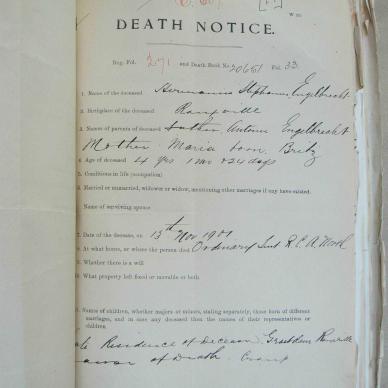 DEATH NOTICE.
Reg. Fol. 271 and Death Book No. 20661 Fol. 33
1. Name of the deceased Hermanus Stephanus Engelbrecht
2. Birthplace of the deceased
3. Names of parents of deceased Father Antonie Engelbrecht
Mother Maria born Britz
4. Age of deceased 4 yrs 1 mo 24 days
5. Conditions in life (occupation)
6. Married or unmarried, widower or widow, mentioning other marriages if any have existed.
Name of surviving spouse
7. Date of the decease, on 13th Nov 1901
8. At what home, or where the person died
9. Whether there is a will
10. What property left fixed or movable or both
11. Names of children, whether majors or minors, stating separately, those born of different
marriages, and in case any deceased then the names of their representatives or
children
Residence of Deceased
of Death